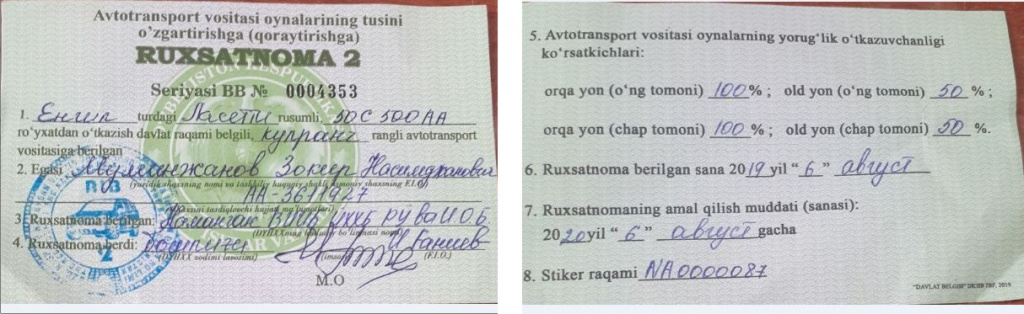 Avtotransport vositasi oynalarining tusini
o'zgartirishga (qoraytirishga)
RUXSATNOMA 2
Seriyasi BB № 0004353
1. Енгил turdagi Ласетти rusumli, 50С500АА
ro'yxatdan o'tkazish davlat raqami belgili, rangli avtotransport
vositasiga berilgan
2. Egasi Муминжанов Зокир
(yuridik shaxsning nomi va tashkiliy-huquqiy shakli, jismoniy shaxsning F.I.O.)
АА-3611927
3. Ruxsatnoma berilgan: Наманган
4. Ruxsatnoma berdi: Ганиев
(imzo) (F.I.O.)
M.O
5. Avtotransport vositasi oynalarning yorug'lik o'tkazuvchanligi
ko'rsatkichlari:
orqa yon (o'ng tomoni) 100 % ; old yon (o'ng tomoni) 50 % ;
orqa yon (chap tomoni) 100 % ; old yon (chap tomoni) 50 %.
6. Ruxsatnoma berilgan sana 2019 yil " 6 " август
7. Ruxsatnomaning amal qilish muddati (sanasi):
2020 yil " 6 " август gacha
8. Stiker raqami NA0000087
"DAVLAT BELGISI" DKIB TRF, 2019